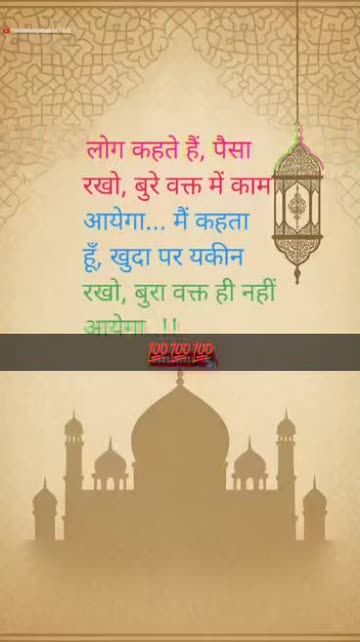 लोग कहते हैं, पैसा
रखो, बुरे वक्त में काम
आयेगा... मैं कहता
हूँ, खुदा पर यकीन
रखो, बुरा वक्त ही नहीं
आयेगा..!!
💯💯💯